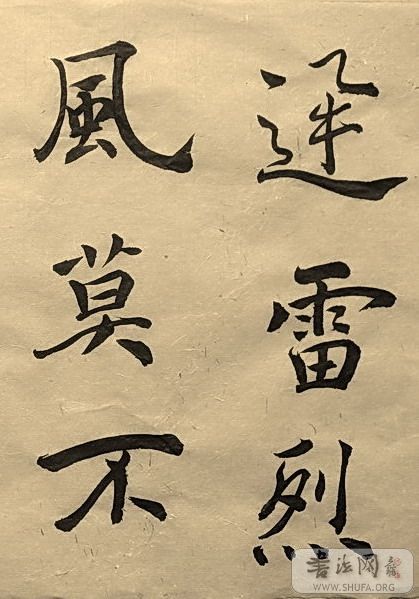 迅雷烈
風莫不
書法网
WWW.SHUFA.ORG